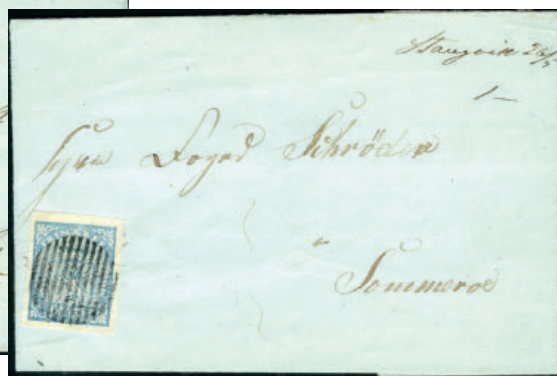 Stangvik 26/5
1–
Foged Schröder
Sommeroe